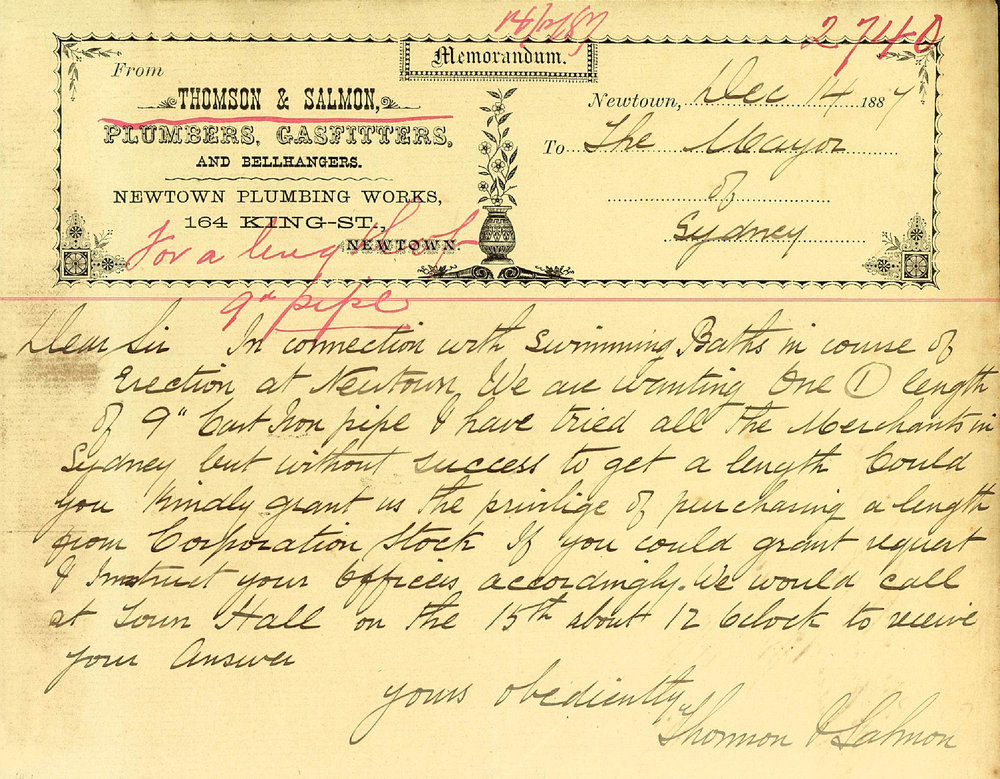 14/12/87
2740
Memorandum.
From
THOMSON & SALMON,
PLUMBERS, GASFITTERS,
AND BELLHANGERS.
NEWTOWN PLUMBING WORKS,
164 KING-ST.,
NEWTOWN.
Newtown, Dec 14 1887
To The Mayor
of
Sydney
For a length of
9" pipe
Dear Sir In connection with Swimming Baths in course of
Erection at Newtown, We are wanting One (1) length
of 9" Cast Iron pipe I have tried all the Merchants in
Sydney but without success to get a length Could
you Kindly grant us the privilige of purchasing a length
from Corporation Stock If you could grant request
& Instruct your Officers accordingly. We would call
at Town Hall on the 15th about 12 Oclock to receive
your Answer
yours obediently
Thomson & Salmon